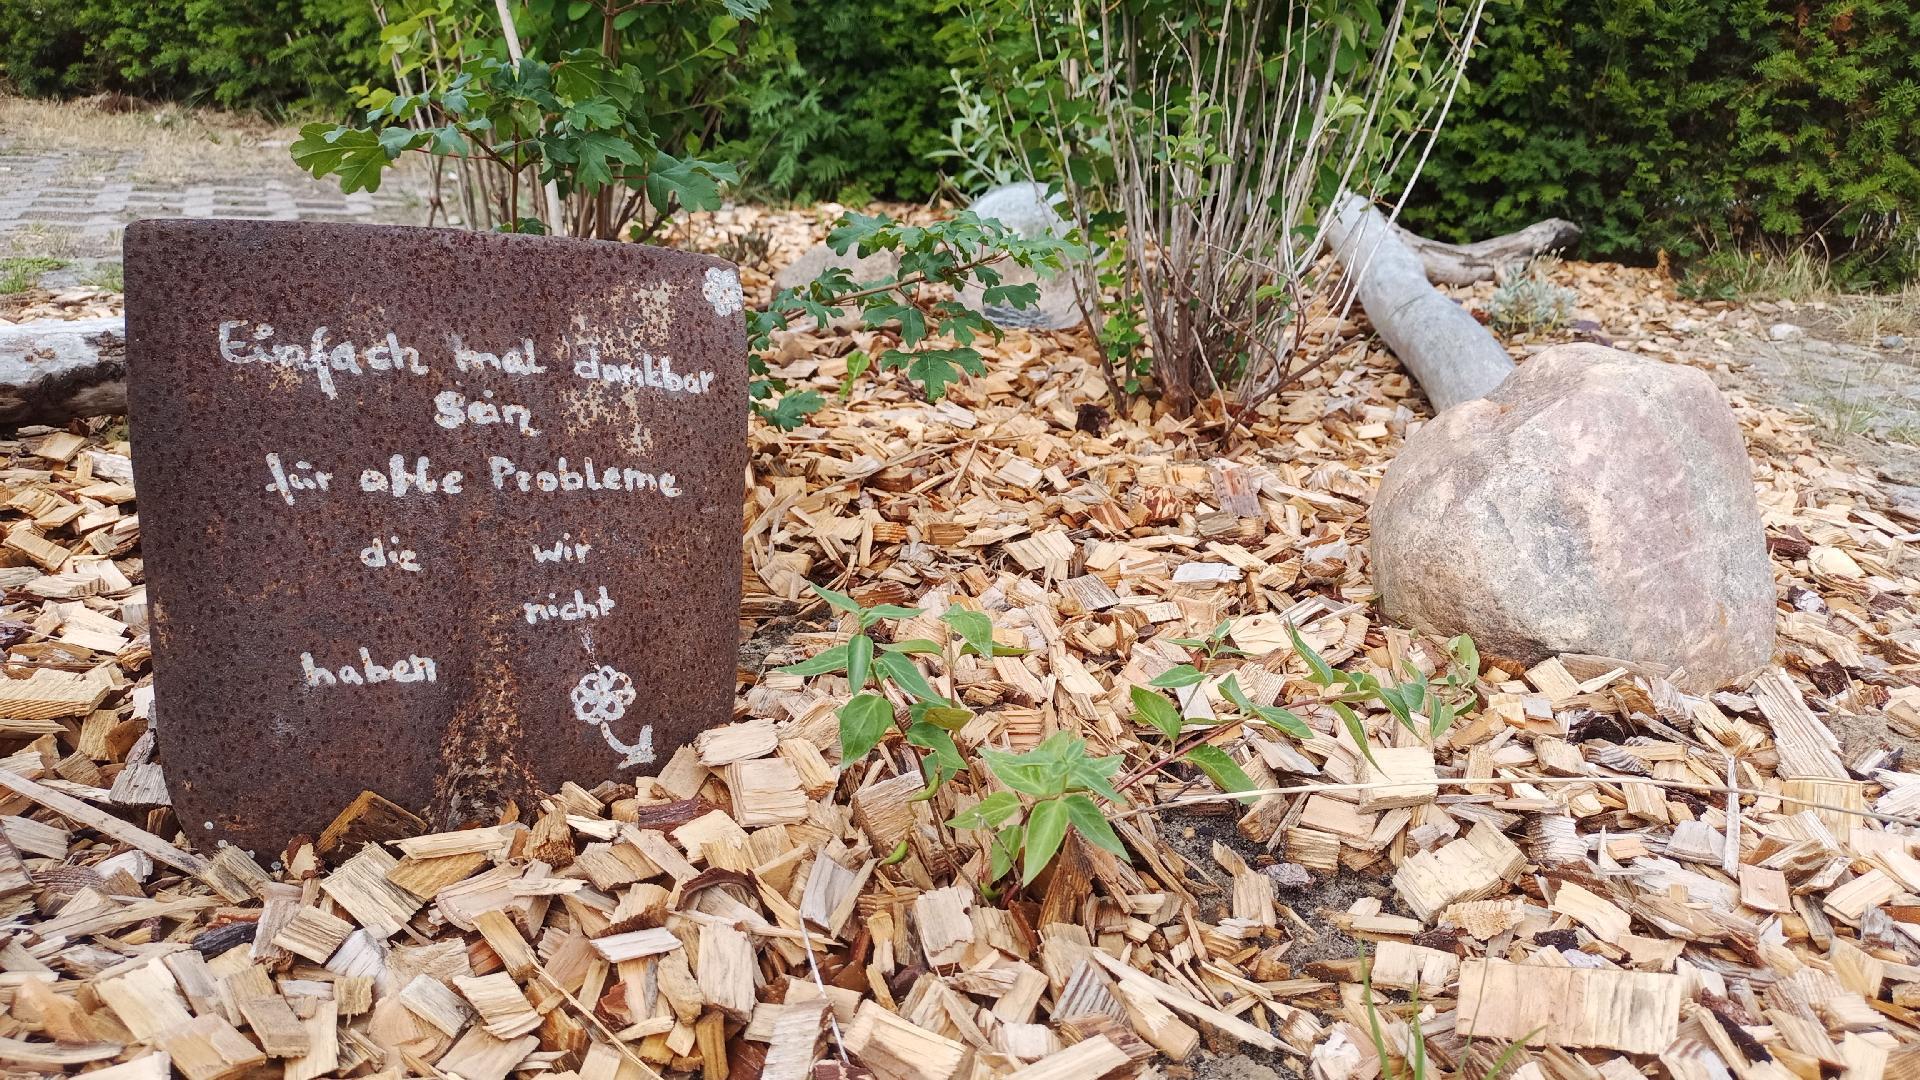 Einfach mal dankbar
sein
für alle Probleme
die wir
nicht
haben